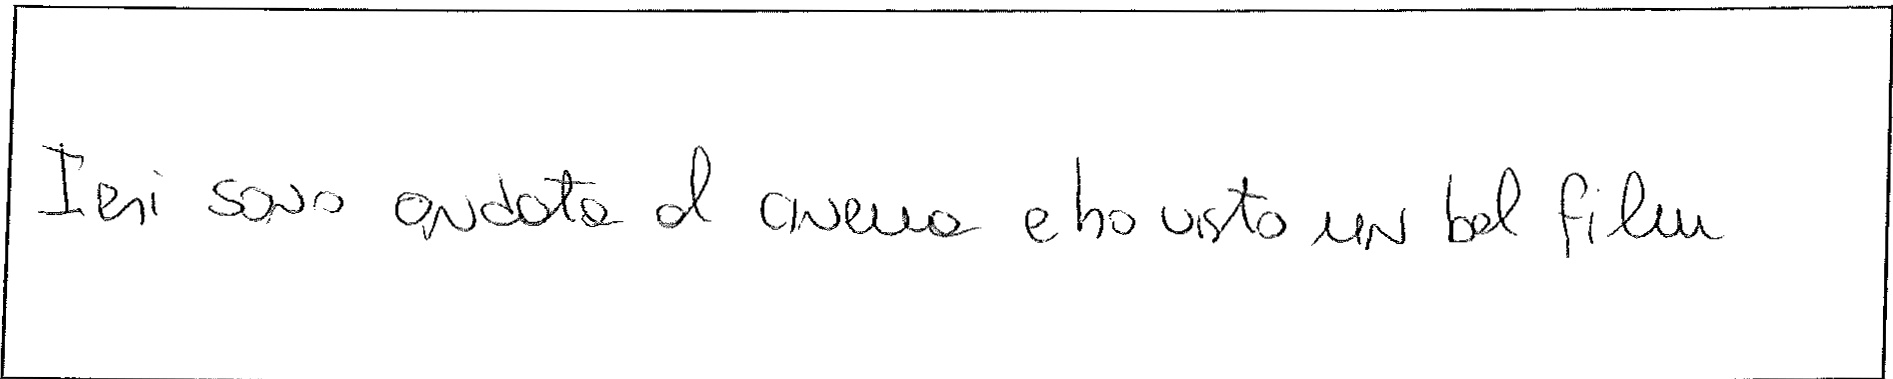 Ieri sono andata al cinema e ho visto un bel film